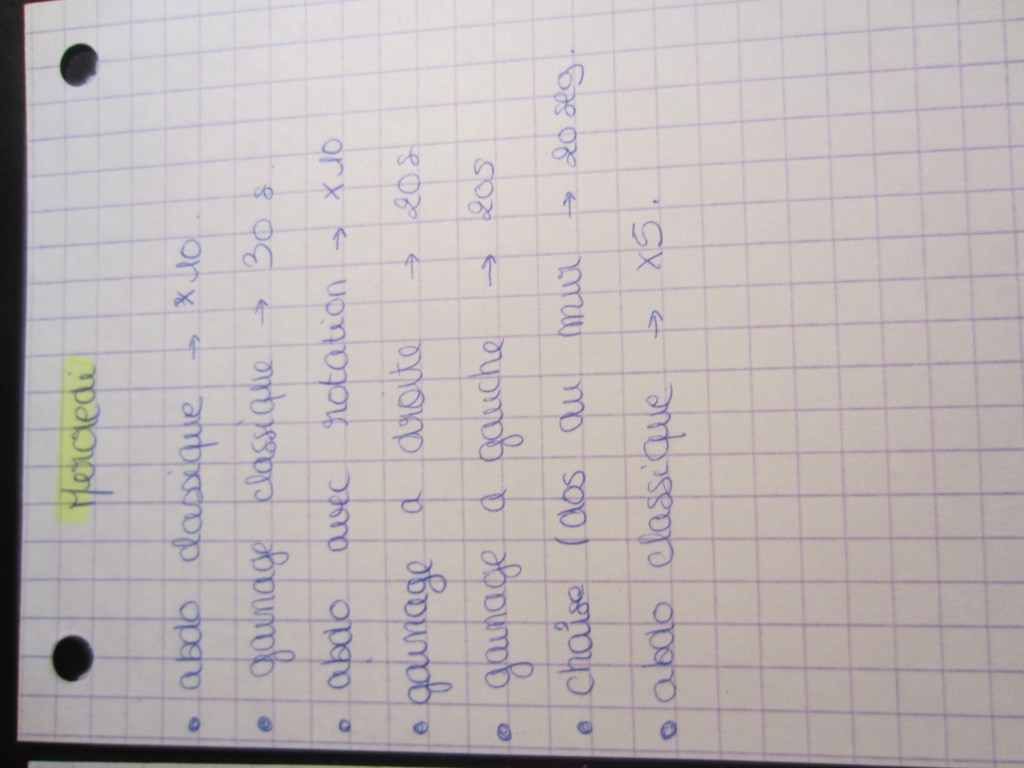 Mercredi
• abdo classique → x 10.
• gainage classique → 30 s.
• abdo avec rotation → x 10
• gainage a droite → 20s
• gainage a gauche → 20s
• chaise (dos au mur → 20 seg.
• abdo classique → x5.